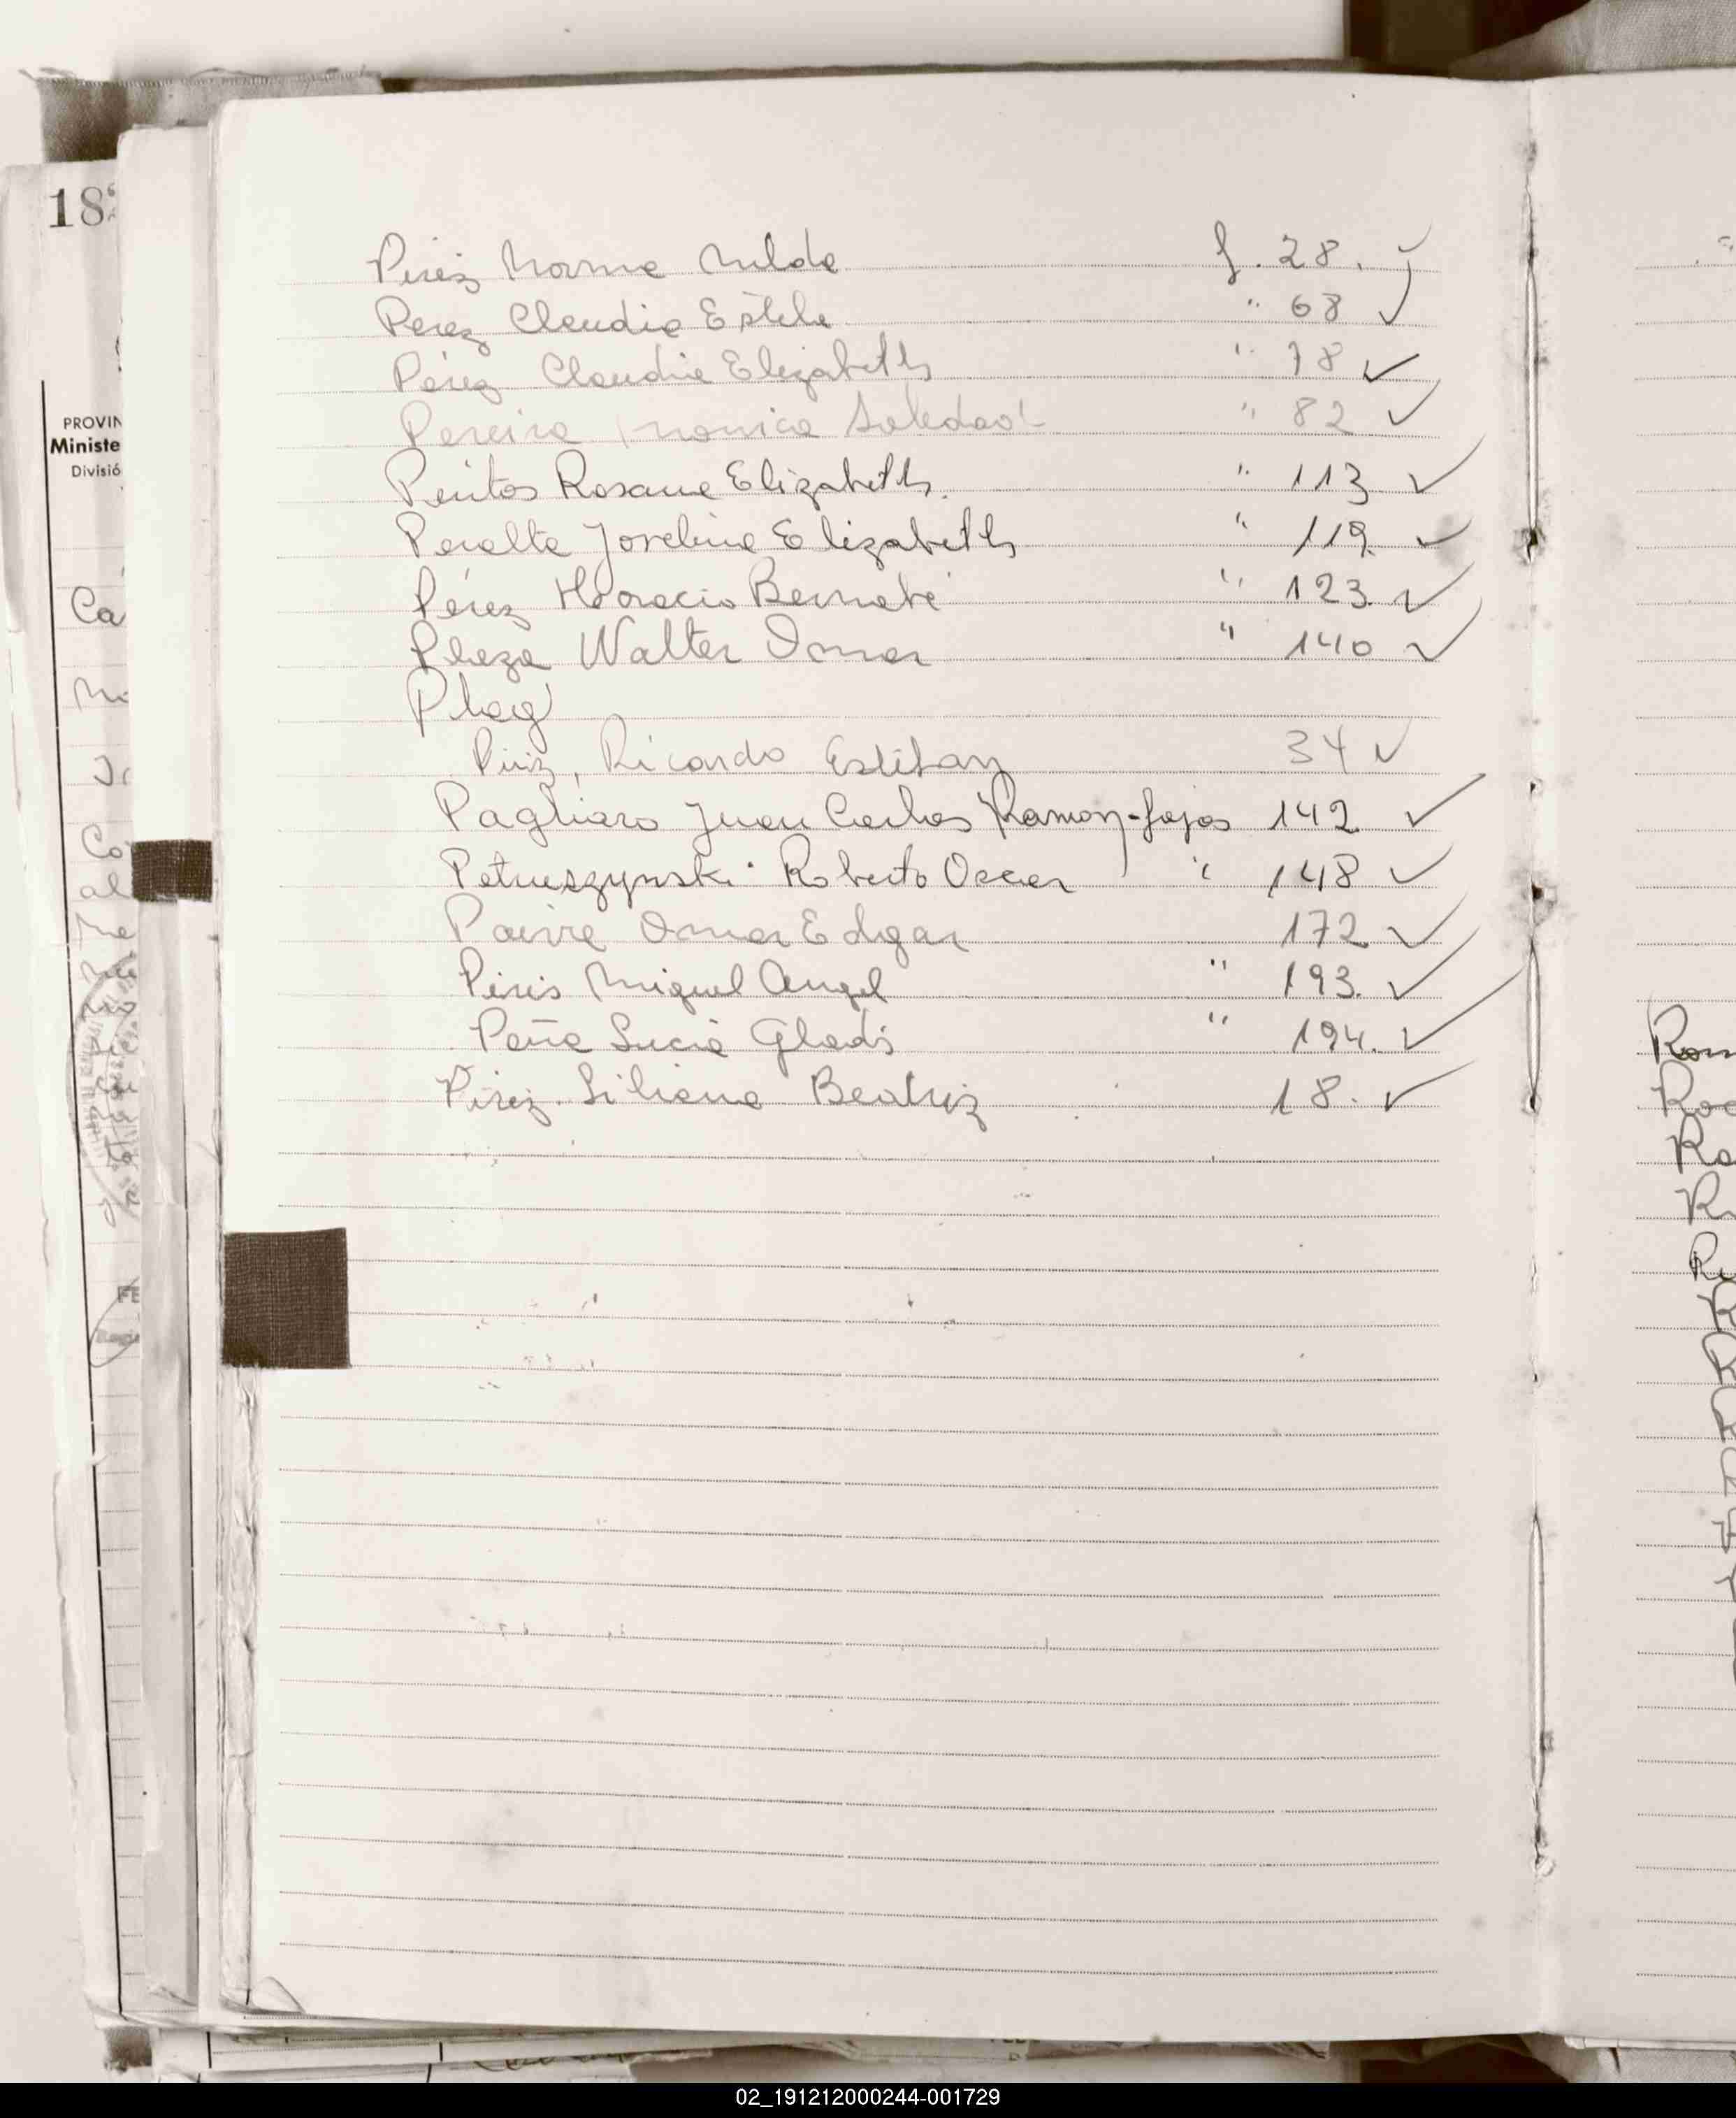 Pirez Norma Nilda f. 28. ✓
Perez Claudia Estela " 68 ✓
Pérez Claudia Elizabeth " 78 ✓
Pereira Monica Soledad " 82 ✓
Rosana Elizabeth. " 113 ✓
Peralta Elizabeth " 119. ✓
Pérez Horacio Bernabé " 123. ✓
Plaza Walter Omar " 140 ✓
Plag
Piriz, Ricardo Esteban 34 ✓
Pagliaro Juan Carlos Ramon-fojas 142 ✓
Petruszynski Roberto Oscar " 148 ✓
Paiva Omar Edgar 172 ✓
Piris Miguel Angel " 193. ✓
Peña Lucia Gladis " 194. ✓
Pirez. Liliana Beatriz 18. ✓
18
PROVIN
Ministe
Divisió
Ca
Co
al
Rom
Ro
Ra
R
02_191212000244-001729